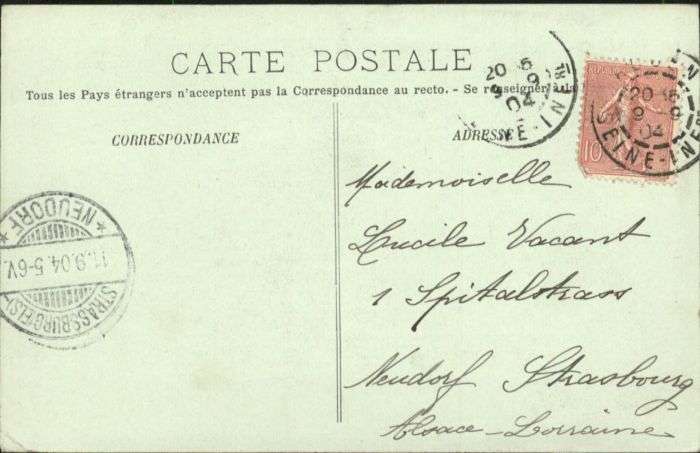 CARTE POSTALE
Tous les Pays étrangers n'acceptent pas la Correspondance au recto. - Se renseigner à la
CORRESPONDANCE
ADRESSE
Mademoiselle
Lucile Vacant
1 Spitalstrass
Neudorf Strasbourg
Alsace-Lorraine
20
9
04
SEINE-IN
10
20
9
04
SEINE-IN
* NEUDORF *
11.9.04.5-6V.
STRASSBURG (ELS)